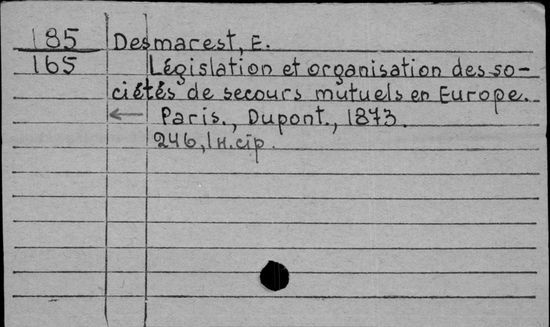 185 Desmarest, E.
165 Législation et organisation des so-
ciétés de secours mutuels en Europe.
← Paris., Dupont., 1873.
246, 1 н. cip.